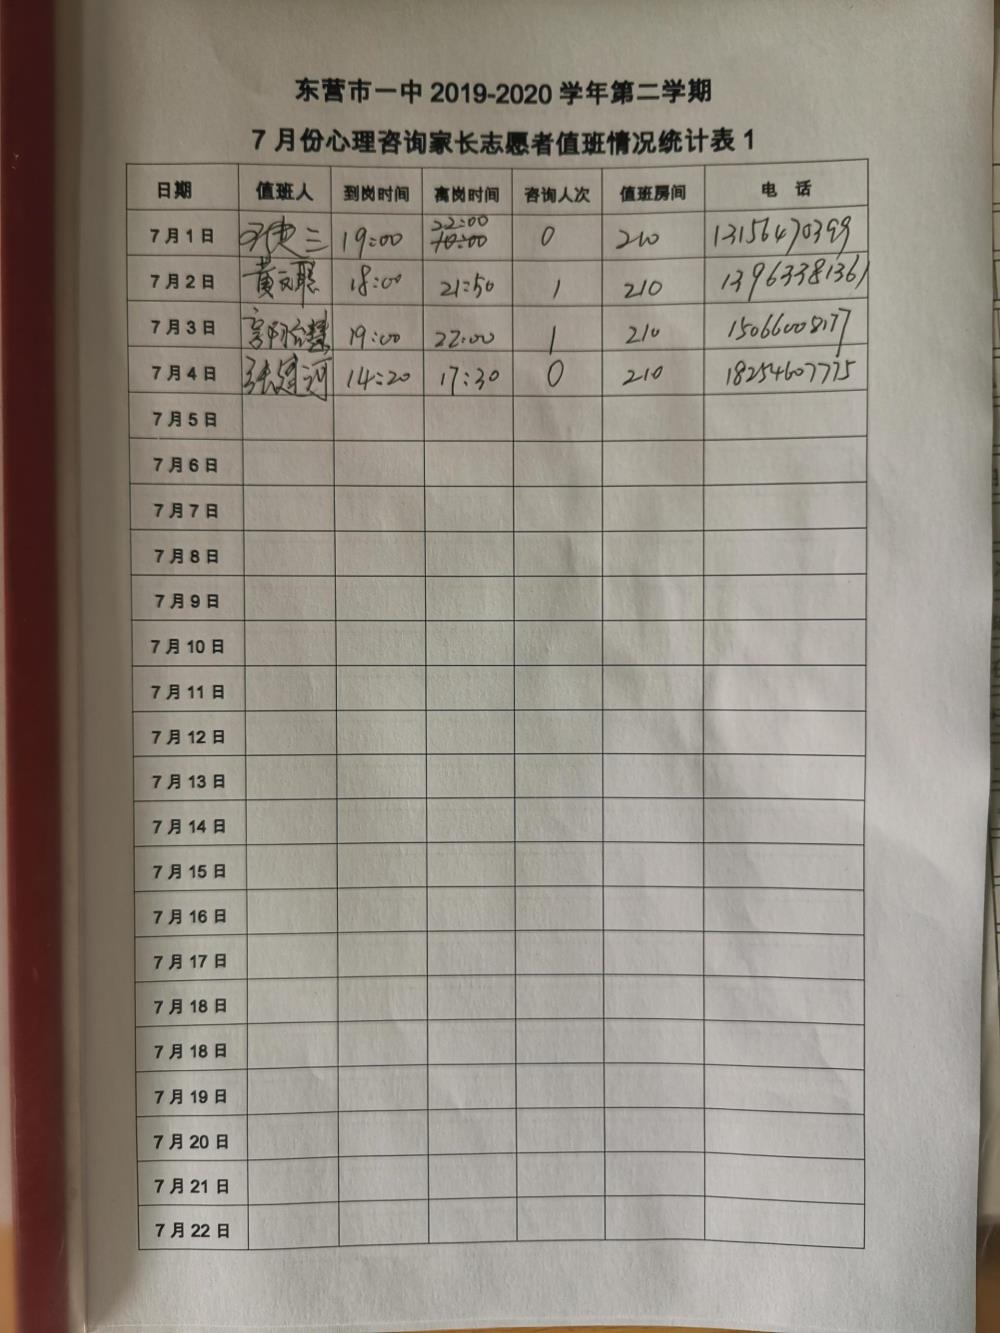 东营市一中 2019-2020 学年第二学期
7 月份心理咨询家长志愿者值班情况统计表 1
日期 值班人 到岗时间 离岗时间 咨询人次 值班房间 电 话
7 月 1 日 19:00 22:00 0 210 13156470399
7 月 2 日 黄云聪 18:00 21:50 1 210 13963381361
7 月 3 日 19:00 22:00 1 210 15066008177
7 月 4 日 张建河 14:20 17:30 0 210 18254607775
7 月 5 日
7 月 6 日
7 月 7 日
7 月 8 日
7 月 9 日
7 月 10 日
7 月 11 日
7 月 12 日
7 月 13 日
7 月 14 日
7 月 15 日
7 月 16 日
7 月 17 日
7 月 18 日
7 月 18 日
7 月 19 日
7 月 20 日
7 月 21 日
7 月 22 日